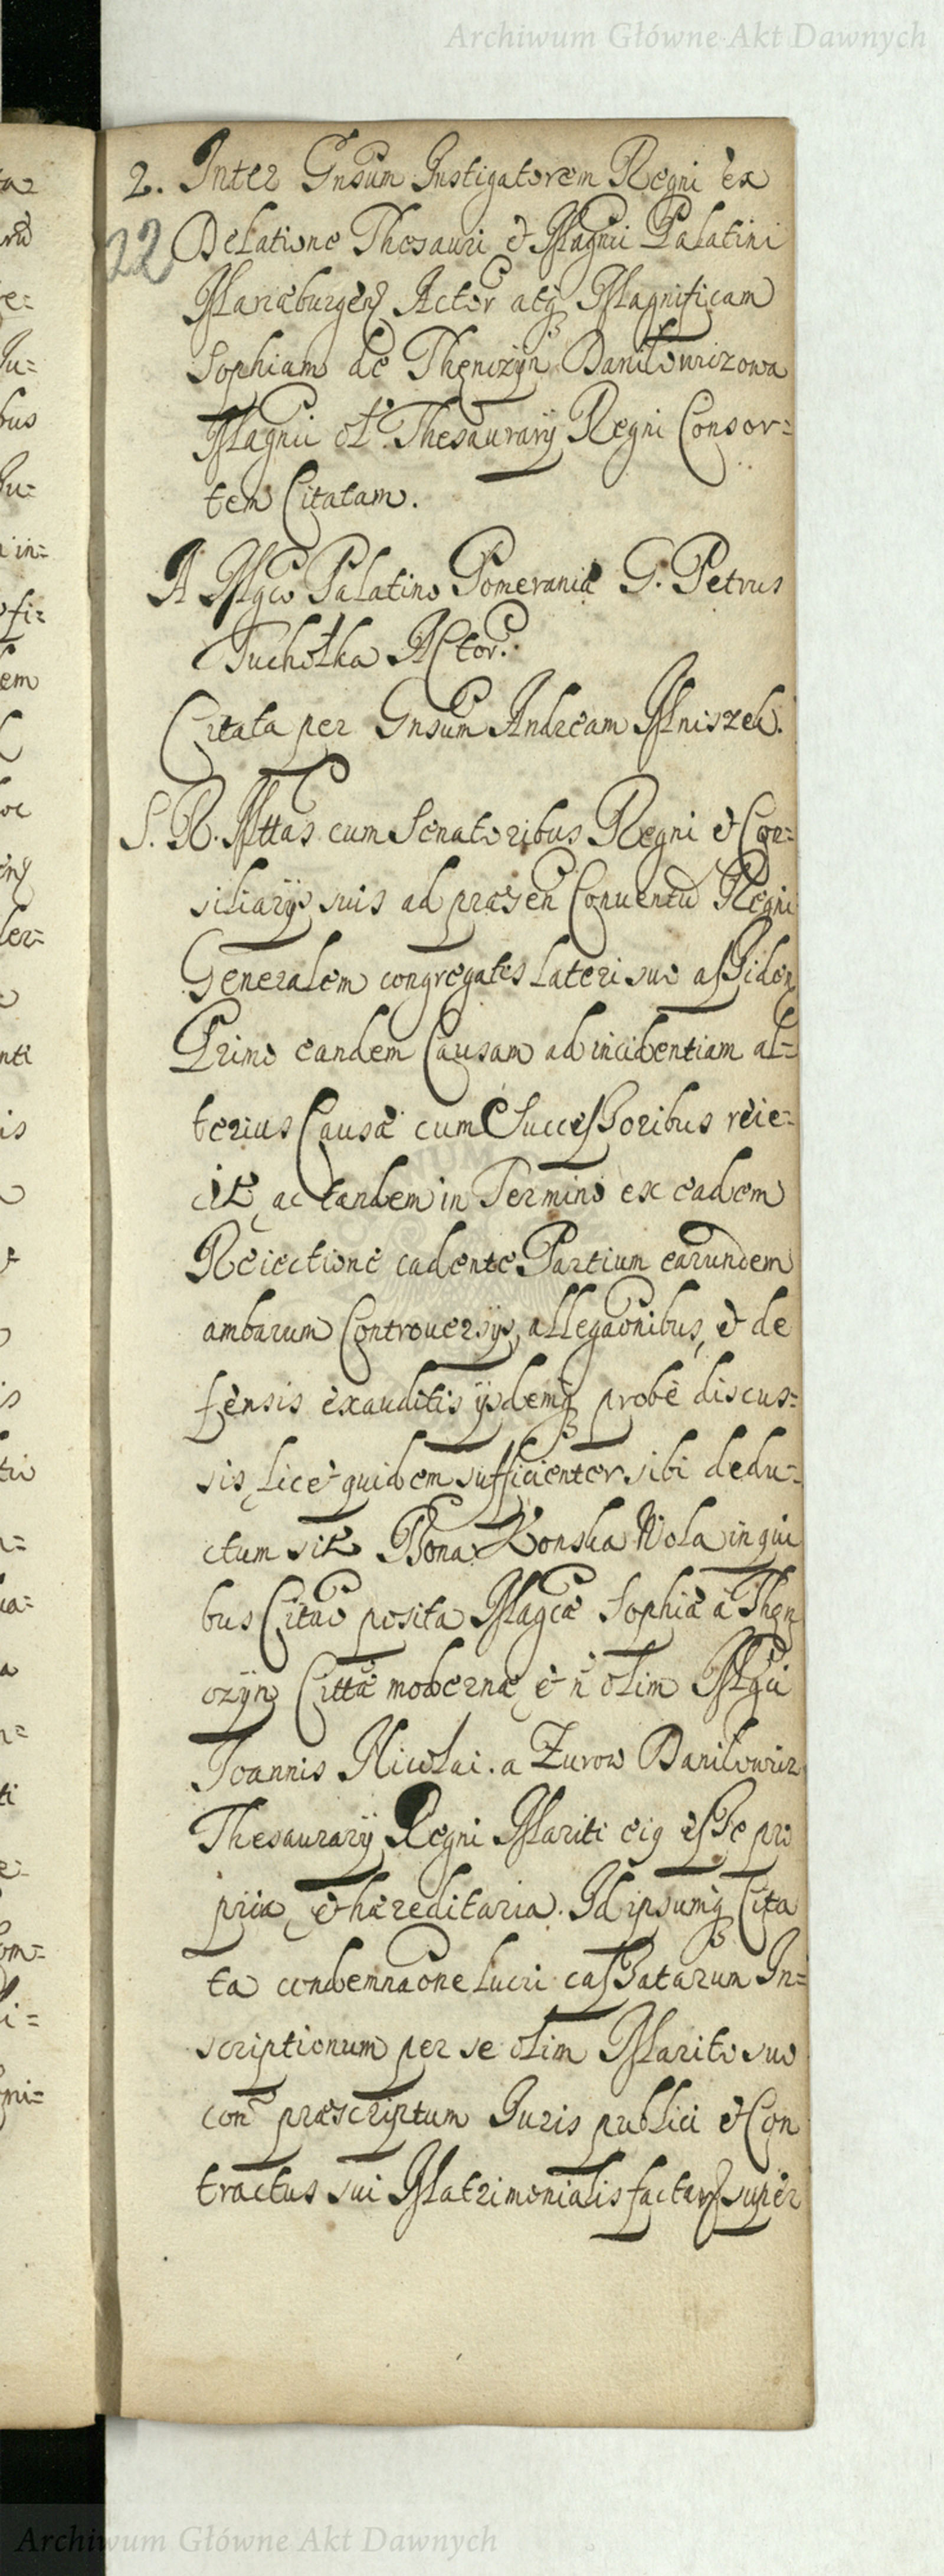 Archiwum Główne Akt Dawnych
2. Inter Gnsum Instigatorem Regni ex
22 Delatione Thesauri & Magnci Palatini
Mariæburgen Actor atq Magnificam
Sophiam de Thenczyn Daniłowiczowa
Magnci ol. Thesaurarij Regni Consor=
tem Citatam.
A Mgco Palatino Pomeraniæ G. Petrus
Tuchołka Actor.
Citata per Gnsum Andream Mniszek.
S. R. Mttas cum Senatoribus Regni & Con=
siliarijs suis ad præsen Conuentu Regni
Generalem congregatis lateri suo assiden
Primo eandem Causam ad incidentiam al=
terius Causæ cum Successoribus reie=
cit, ac tandem in Termino ex eadem
Reiectione cadente Partium earundem
ambarum Controuersijs, allegaonibus, & de
fensis exauditis ijsdemq probè discus=
sis, licet quidem sufficienter sibi dedu=
ctum sit Bona Wola in qui
bus Citao posita Magcæ Sophiæ a Then
czyn Cittæ modernæ, & n olim Mgci
Joannis Nicolai a Zurow Daniłowicz
Thesaurarij Regni Mariti eig esse pro
pria, & hæreditaria. Id ipsumq Cita
ta condemnaone lucri cassatarum In=
scriptionum per se olim Marito suo
con præscriptum Juris publici & Con
tractus sui Matrimonialis factar super
Archiwum Główne Akt Dawnych